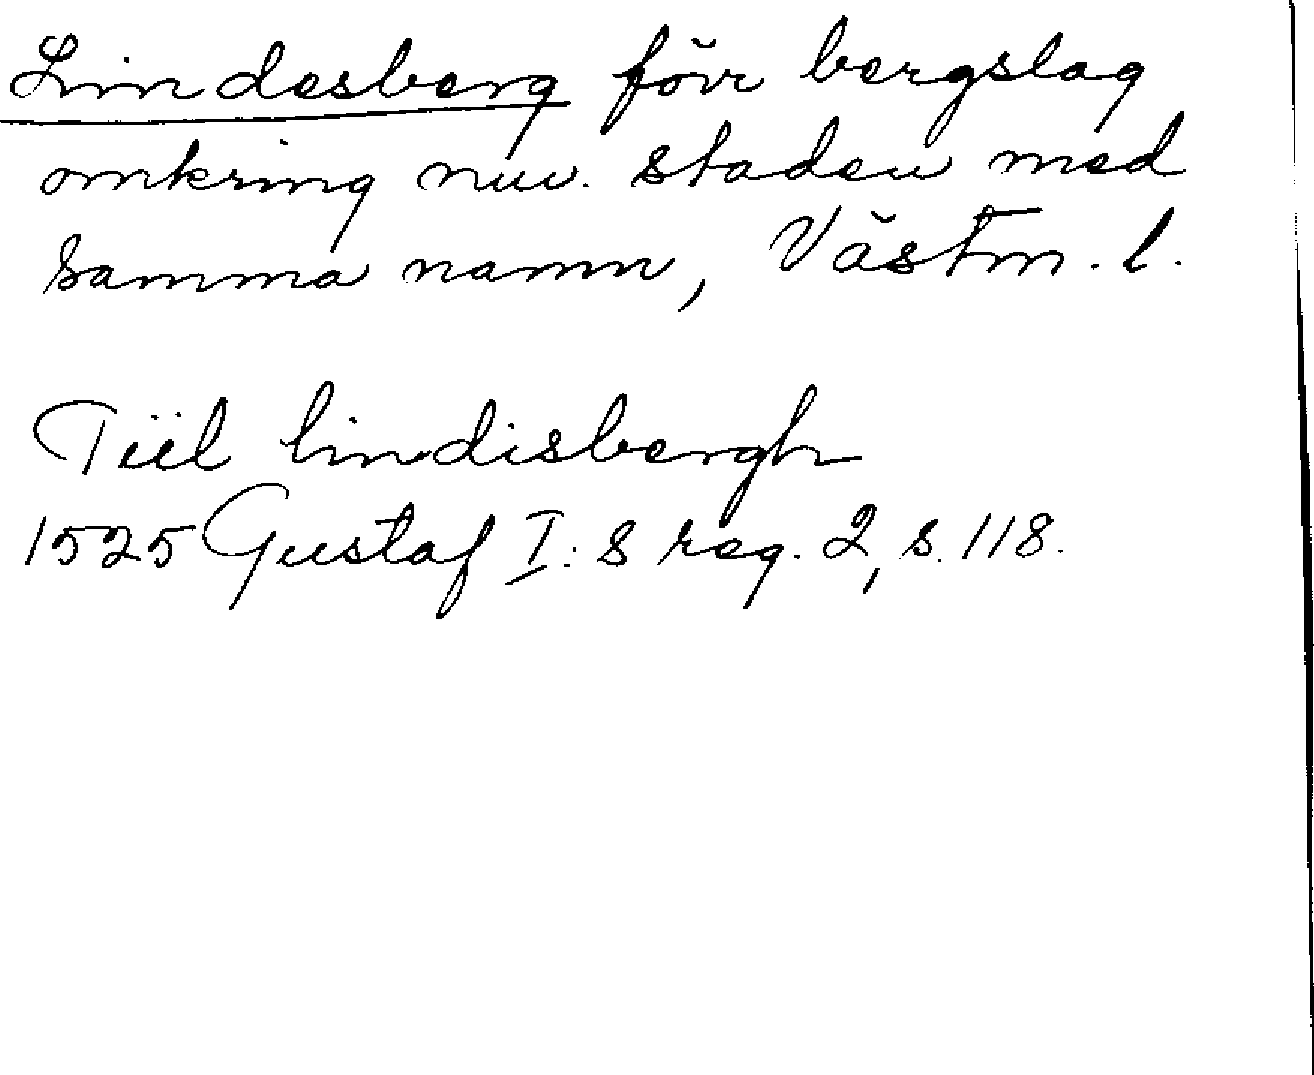 Lindesberg förr bergslag
omkring nuv. staden med
samma namn, Västm. l.
Tiil lindisbergh
1525 Gustaf I:s reg. 2, s. 118.